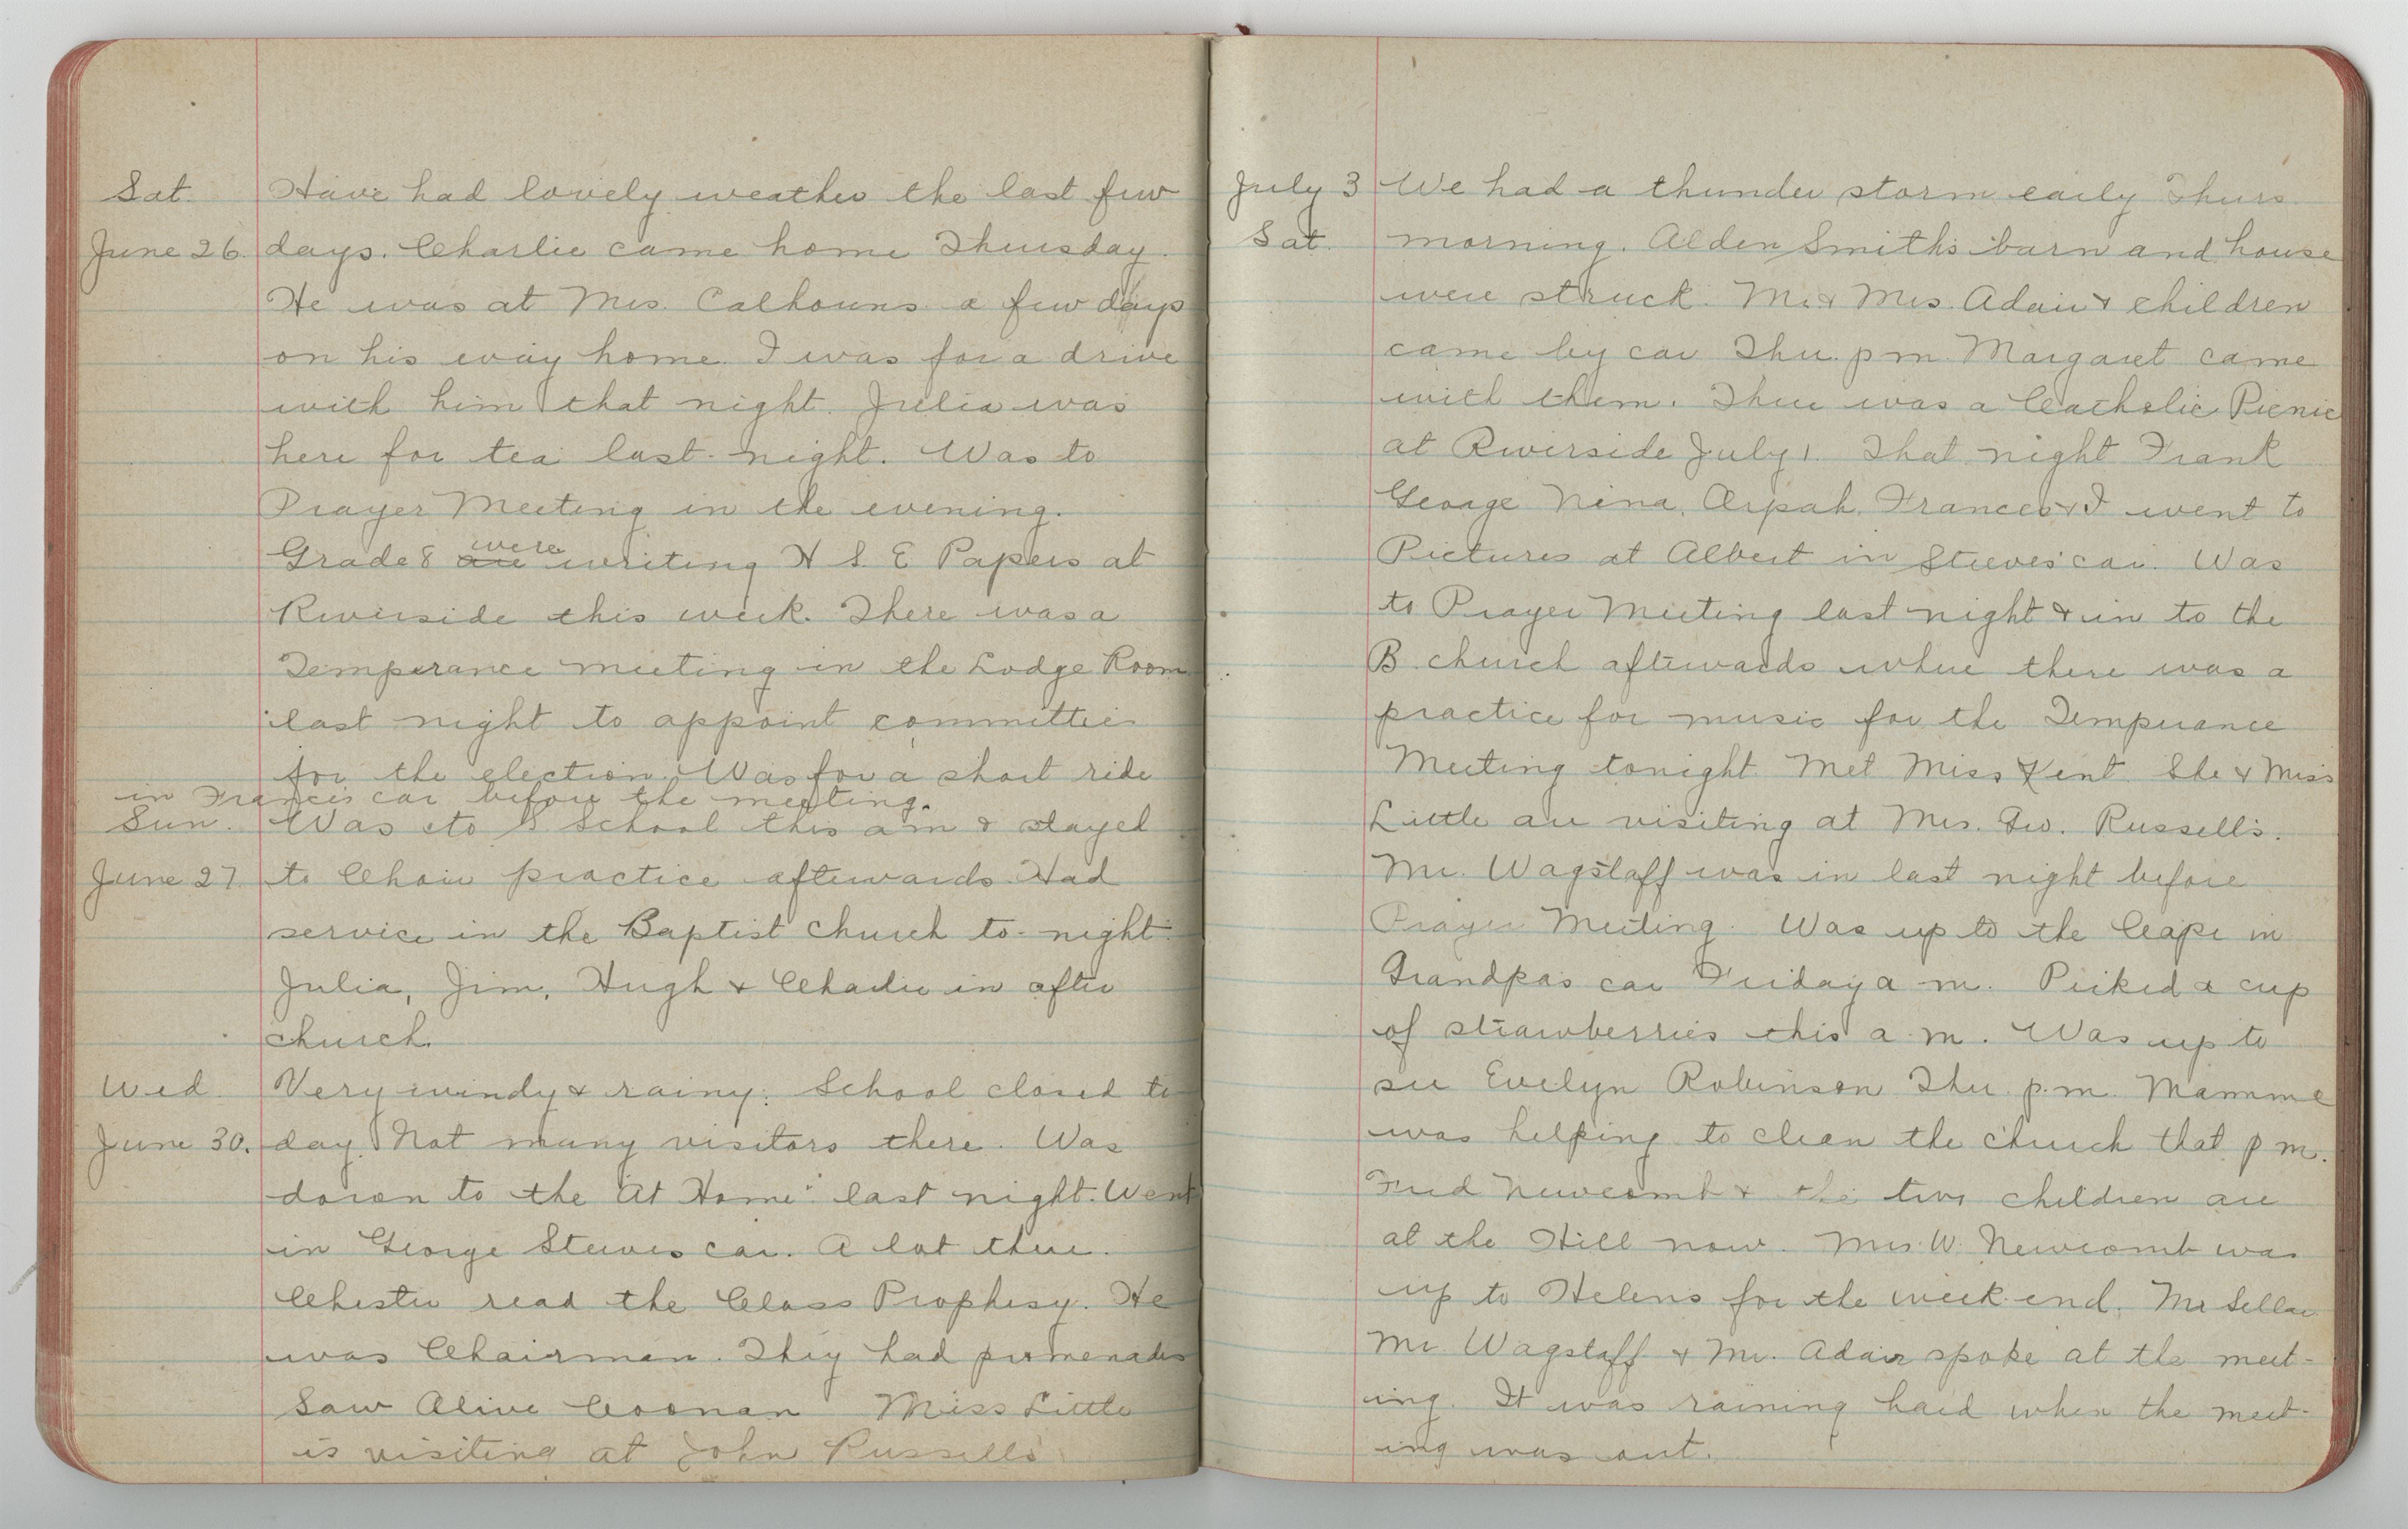 Sat. Have had lovely weather the last few
June 26. days. Charlie came home Thursday.
He was at Mrs. Calhouns a few days
on his way home. I was for a drive
with him that night. Julia was
here for tea last night. Was to
Prayer Meeting in the evening.
Grade 8 are were writing H S. E Papers at
Riverside this week. There was a
Temperance meeting in the Lodge Room
last night to appoint committees
for the election. Was for a short ride
in Francis car before the meeting.
Sun. Was to S School this a m & stayed
June 27. to Choir practice afterwards. Had
service in the Baptist church to-night.
Julia, Jim, Hugh & Charlie in after
church.
Wed. Very windy & rainy. School closed to
June 30. day. Not many visitors there. Was
down to the "At Home" last night. Went
in George Steeves car. A lot there.
Chester read the Class Prophesy. He
was Chairman. They had promenades
Saw Alive Coonan Miss Little
is visiting at John Russells
July 3 We had a thunder storm early Thurs
Sat. morning. Alden Smith's barn and house
were struck. Mr. & Mrs. Adair & children
came by car Thu. p m. Margaret came
with them. There was a Catholic Picnic
at Riverside July 1. That night Frank
George Nina, Arpah, Frances & I went to
Pictures at Albert in Steeves' car. Was
to Prayer Meeting last night & in to the
B. church afterwards where there was a
practice for music for the Temperance
Meeting tonight. Met Miss Kent. She & Miss
Little are visiting at Mrs. Geo. Russell's.
Mr. Wagstaff was in last night before
Prayer Meeting. Was up to the Cape in
Grandpa's car Friday a m. Picked a cup
of strawberries this a. m. Was up to
see Evelyn Robinson Thu. p. m. Mamme
was helping to clean the church that p m.
Fred Newcomb & the two children are
at the Hill now. Mrs. W. Newcomb was
up to Helens for the week-end. Mr Sellar
Mr. Wagstaff & Mr. Adair spoke at the meet-
ing. It was raining hard when the meet-
ing was out.